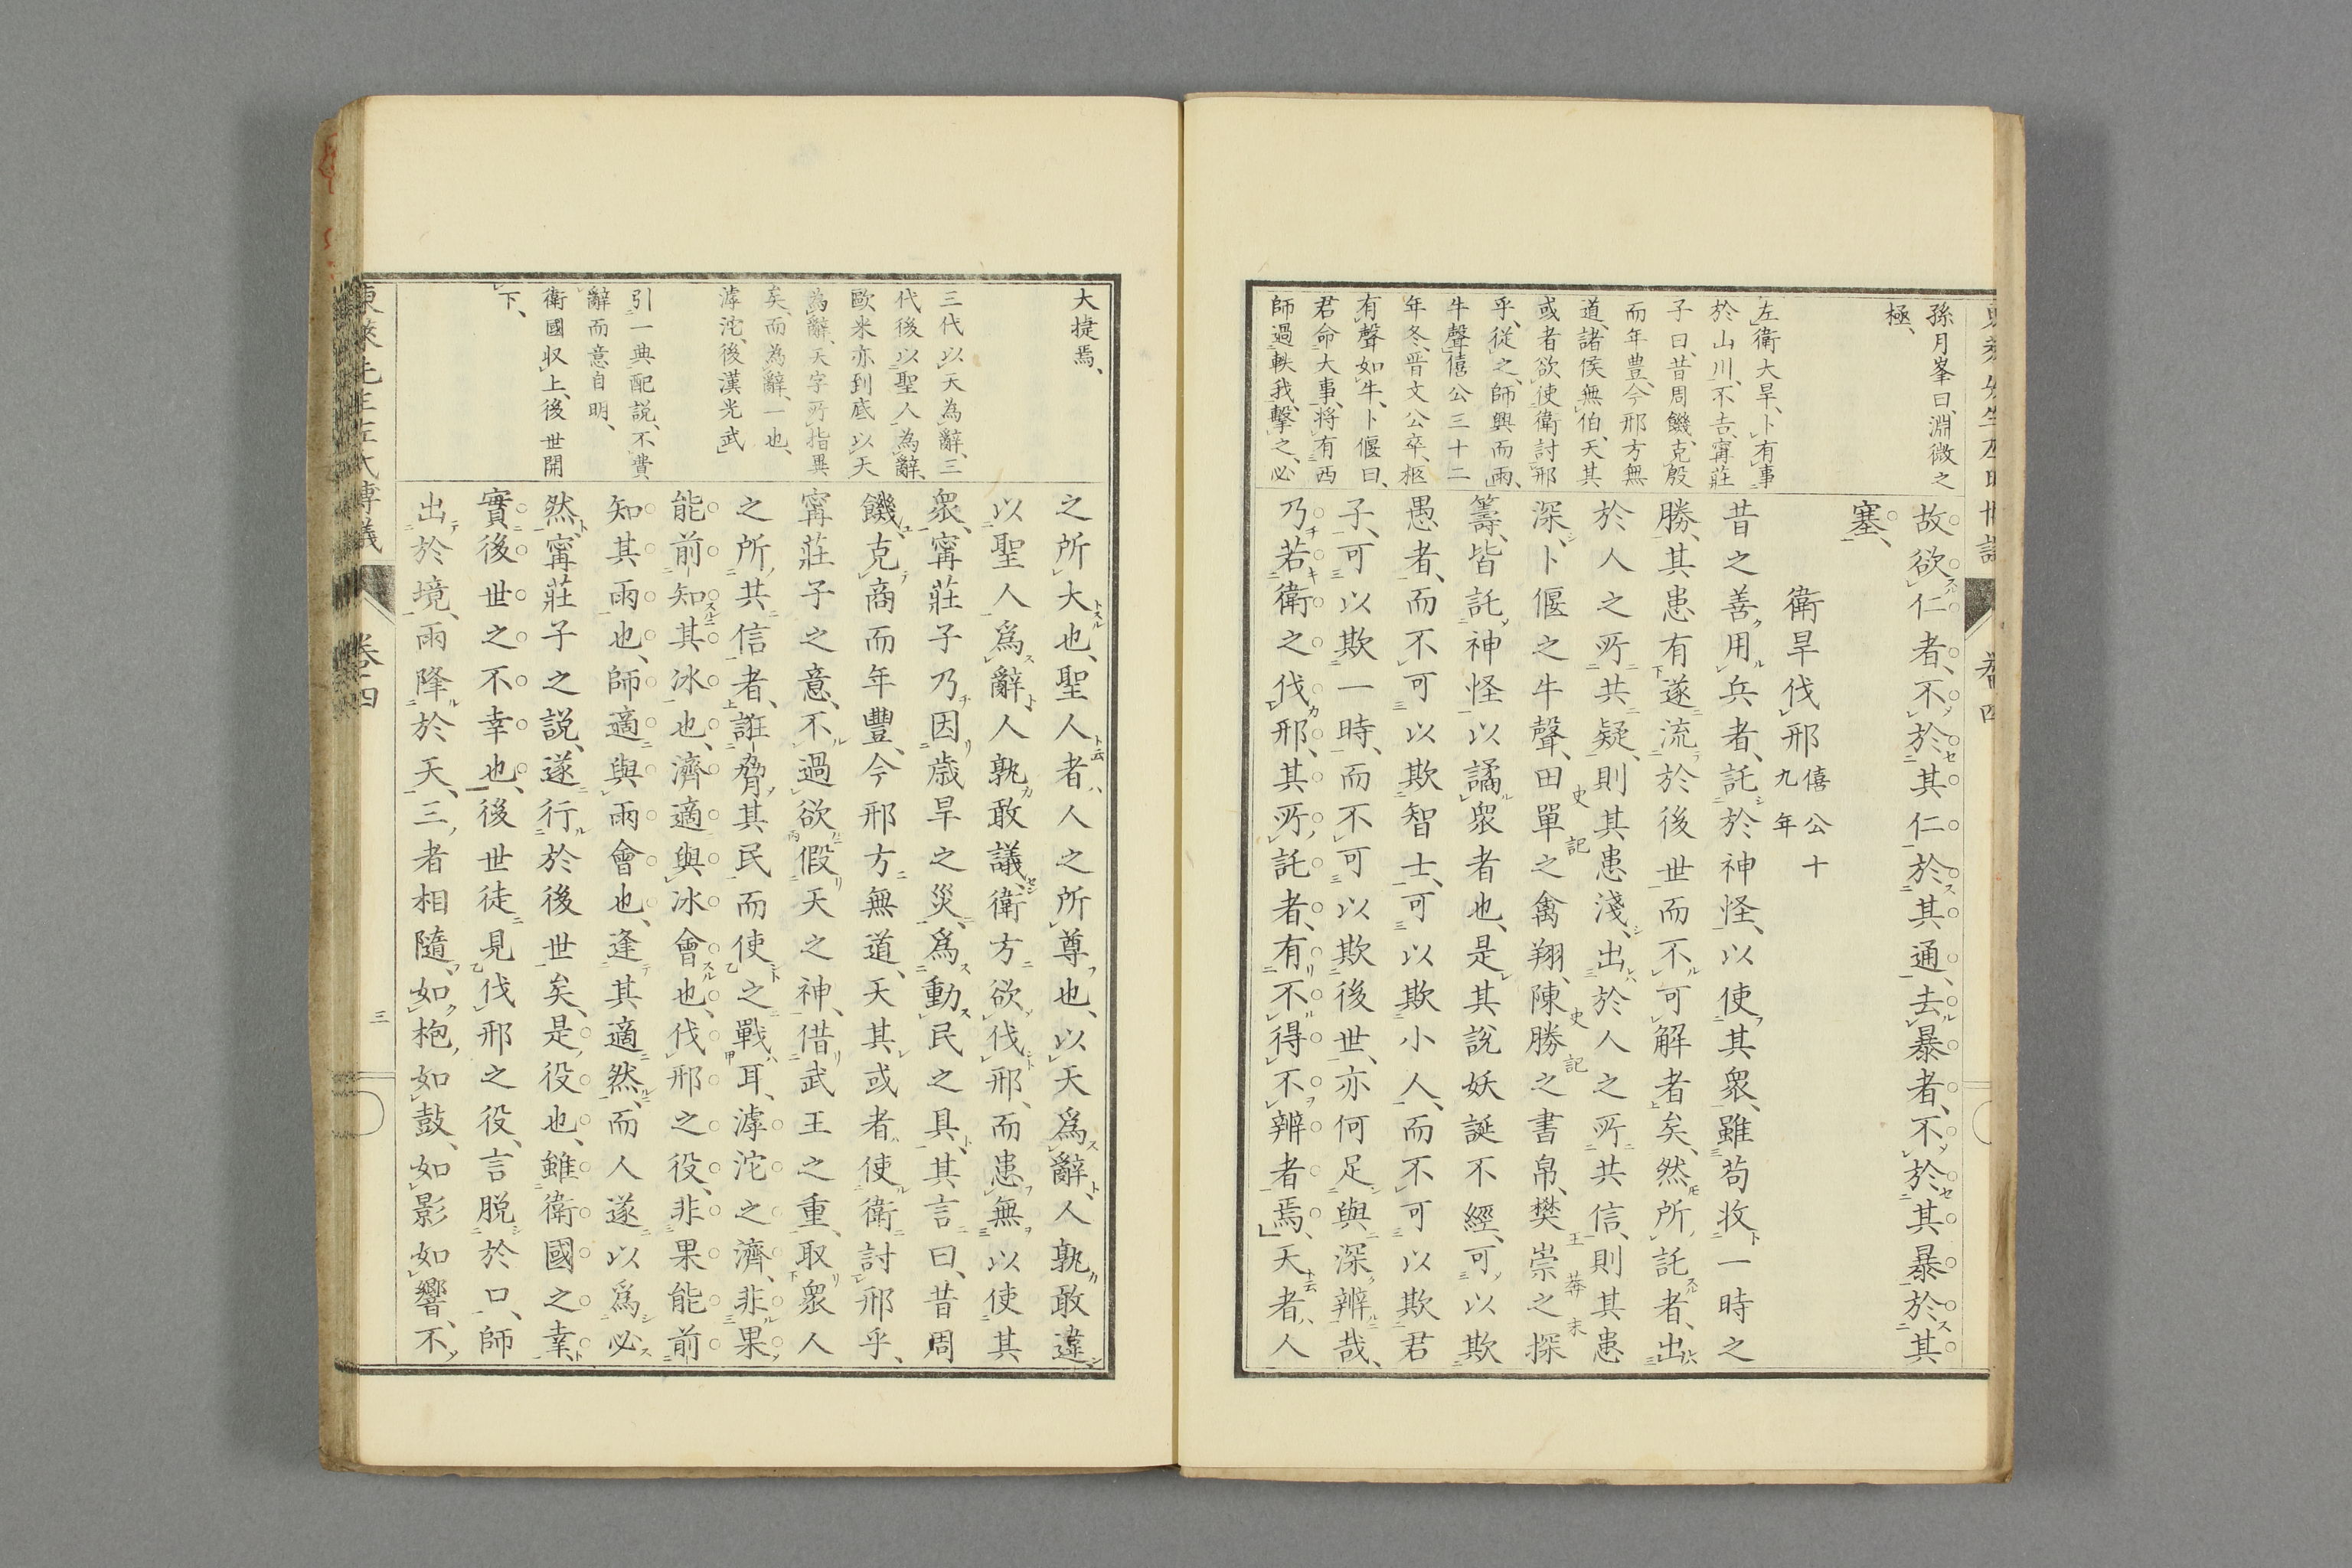 孫月峯曰、淵微之
極、
左、衛大旱、卜有事
於山川、不吉、甯莊
子曰、昔周饑、克殷
而年豊、今邢方無
道、諸侯無伯、天其
或者欲使衛討邢
乎、從之、師興而雨、
牛聲、僖公三十二
年冬、晋文公卒、柩
有聲如牛、卜偃曰、
君命大事、將有西
師過軼我、擊之、必
故欲仁者、不於其仁於其通、去暴者、不於其暴於其
塞、
衛旱伐邢 僖公十九年
昔之善用兵者、託於神怪、以使其衆、雖苟收一時之
勝、其患有遂流於後世而不可解者矣、然所託者、出
於人之所共疑、則其患淺、出於人之所共信、則其患
深、卜偃之牛聲、田單之禽翔、陳勝之書帛、樊崇之探
史記 史記 王莽末
籌、皆託神怪以譎衆者也、是其說妖誕不經、可以欺
愚者、而不可以欺智士、可以欺小人、而不可以欺君
子、可以欺一時、而不可以欺後世、亦何足與深辨哉、
乃若衛之伐邢、其所託者、有不得不辨者焉、天者、人
卷四
大捷焉、
三代以天為辭、三
代後以聖人為辭、
歐米亦到底以天
為辭、天字所指異
矣、而為辭、一也、
滹沱、後漢光武
引一典配説、不費
辭而意自明、
衛國収上、後世開
下、
之所大也、聖人者人之所尊也、以天爲辭、人孰敢違
以聖人爲辭、人孰敢議、衛方欲伐邢、而患無以使其
衆、甯莊子乃因歳旱之災、爲動民之具、其言曰、昔周
饑、克商而年豐、今邢方無道、天其或者使衛討邢乎、
甯莊子之意、不過欲假天之神、借武王之重、取衆人
之所共信者、誑脅其民而使之戰耳、滹沱之濟、非果
能前知其冰也、濟適與冰會也、伐邢之役、非果能前
知其雨也、師適與雨會也、逢其適然、而人遂以爲必
然、甯莊子之説、遂行於後世矣、是役也、雖衛國之幸、
實後世之不幸也、後世徒見伐邢之役、言脱於口、師
出於境、雨降於天、三者相隨、如枹、如鼓、如影如響、不
東萊先生左氏博議 卷四 三